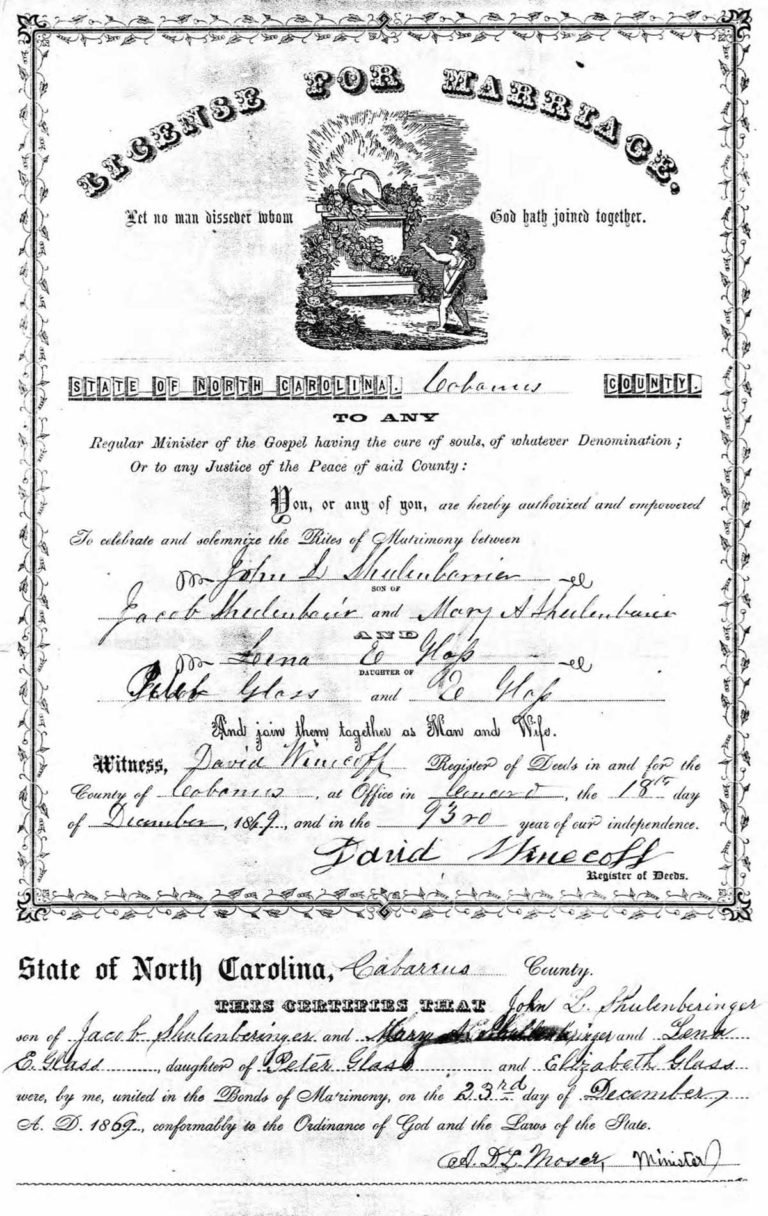 LICENSE FOR MARRIAGE.
Let no man dissever whom God hath joined together.
STATE OF NORTH CAROLINA. Cabarrus COUNTY.
TO ANY
Regular Minister of the Gospel having the cure of souls, of whatever Denomination;
Or to any Justice of the Peace of said County:
You, or any of you, are hereby authorized and empowered
To celebrate and solemnize the Rites of Matrimony between
John L Shulenbarrier
SON OF
Jacob and Mary A
AND
Lena E Glass
DAUGHTER OF
Glass and E Glass
And join them together as Man and Wife.
Witness, David Winecoff Register of Deeds in and for the
County of Cabarrus, at Office in Concord, the 18th day
of December, 1869, and in the 93rd year of our independence.
David Winecoff
Register of Deeds.
State of North Carolina, Cabarrus County.
THIS CERTIFIES THAT John L. Shulenberinger
son of Jacob Shulenberinger and Mary and Lena
E. Glass, daughter of Peter Glass and Elizabeth Glass
were, by me, united in the Bonds of Matrimony, on the 23rd day of December
A. D. 1869, conformably to the Ordinance of God and the Laws of the State.
A. D. L. Moser, Minister